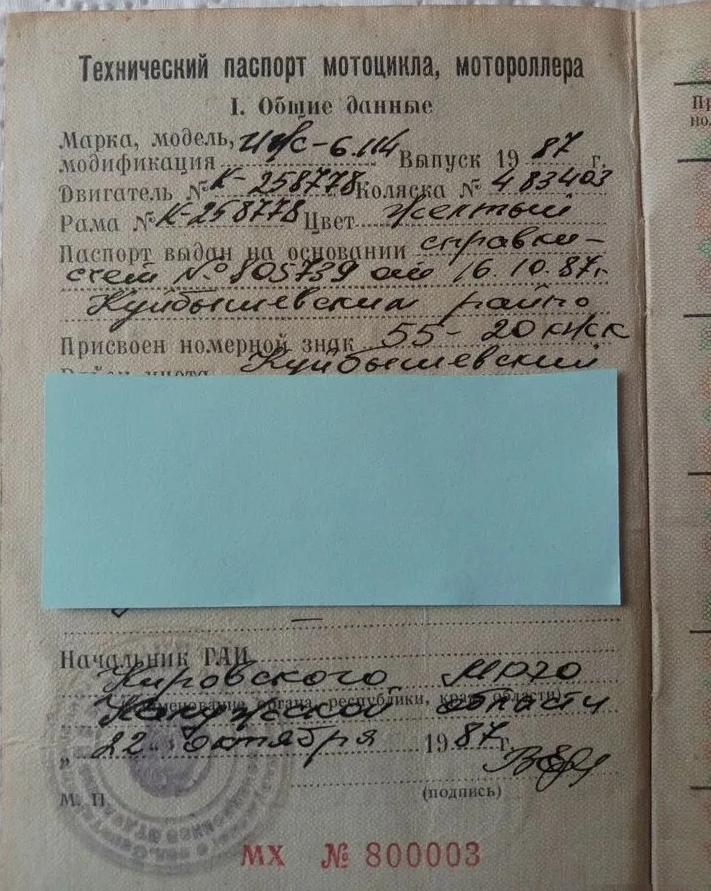 Технический паспорт мотоцикла, мотороллера
I. Общие данные
Марка, модель, Иж-6.114
модификация Выпуск 19 87 г.
Двигатель № К-258778 Коляска № 483403
Рама № К-258778 Цвет желтый
Паспорт выдан на основании справки-
счет № 805739 от 16.10.87г
Куйбышевским райпо
Присвоен номерной знак 55-20
Куйбышевский
Начальник ГАИ
Кировского МРЭО
(наименование органа, республики, края, области)
Калужской области
„ 22 " октября 19 87 г.
М. П. (подпись)
МХ № 800003